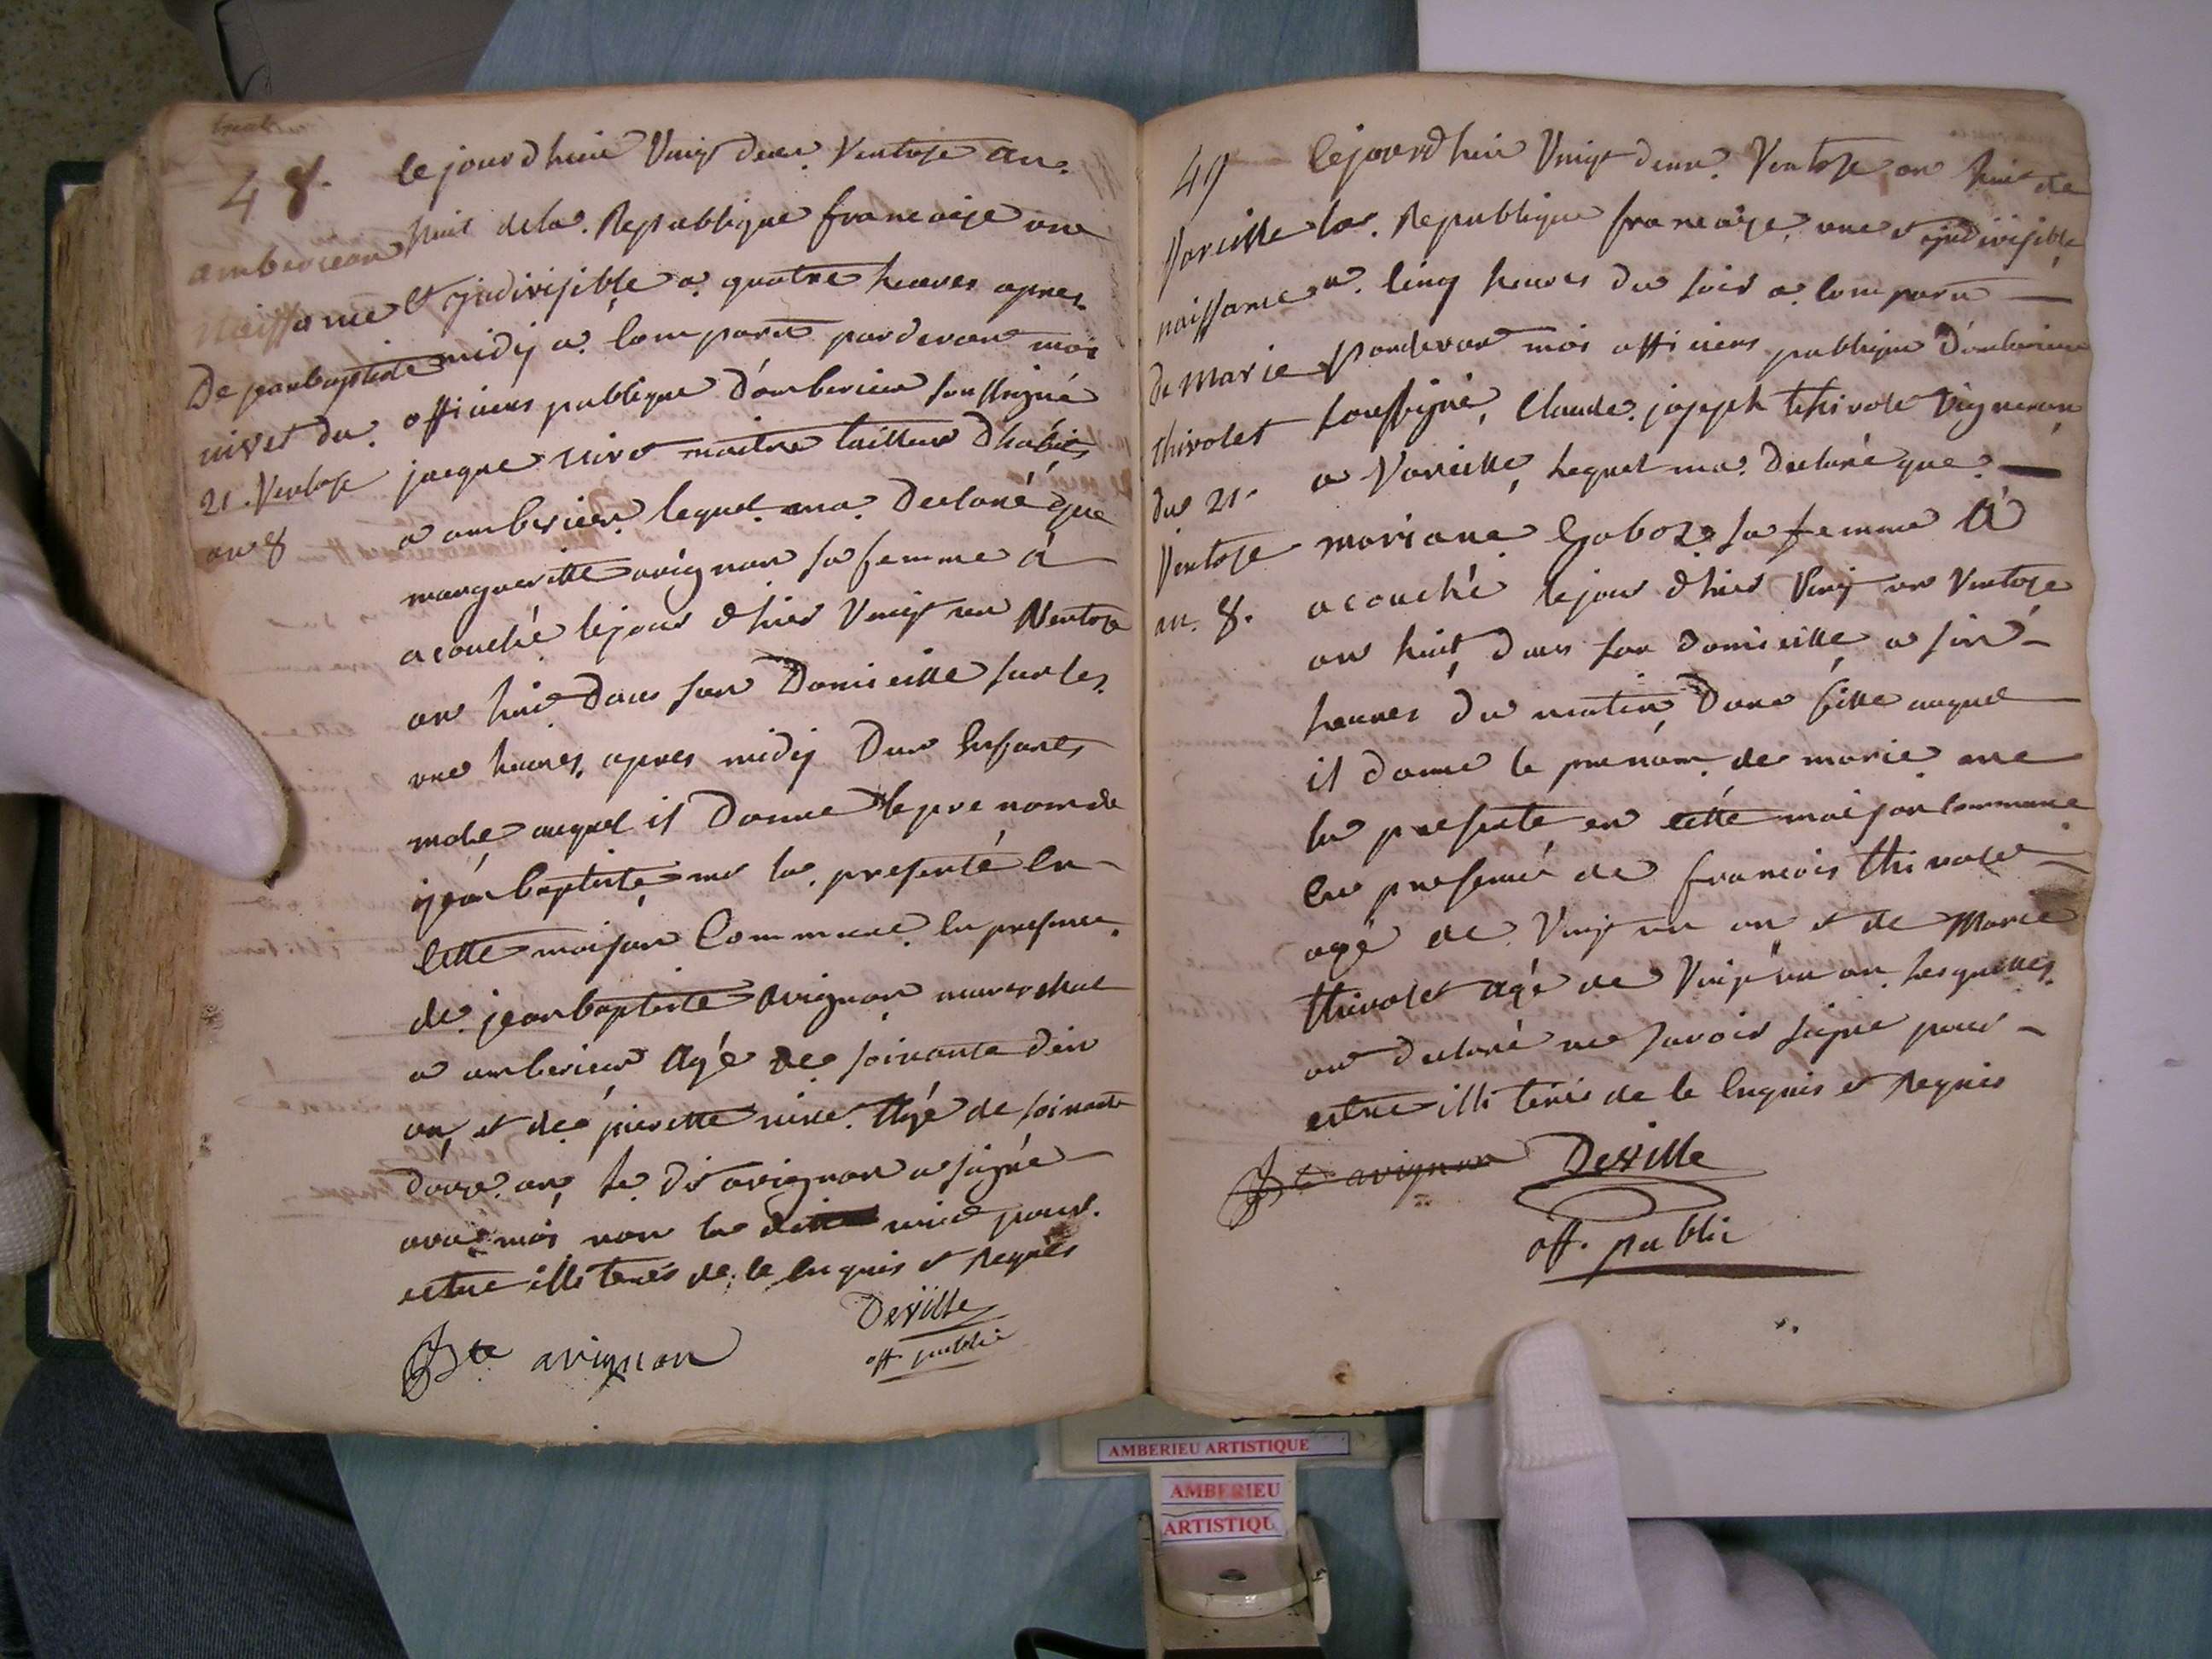 48.
amberieu
naissance
De jean baptiste
nivet du
21. Ventose
an 8
le jour dhuie Vingt deux Ventose an
huit de la Republique francaise une
et jndivisible a quatre heures apres
midij a Comparut pardevant moi
officiers publique d'amberieu soussigné
jacque nivet maitre tailleur Dhabis
a amberieu lequel ma Declaré que
margueritte avignon sa femme á
acouché lejour dhier Vingt un Ventose
an huit Dans son Domicille sur les
une heures apres midij Dun Enfants
male auquel il Donne le pre nom de
jean baptiste me la presenté En
Cette maison Commune En presence
de jean baptiste avignon marechal
a amberieu Agé de soixante dix
an et de pierette nivet Agé de soixante
douze an le Dit avignon a signé
avec moi non la ditte nivet pour
estre illiterés de le Enquis et Requis
Bte avignon
Deville
off public
49
Vareille
naissance
de marie
thivolet
du 21
Ventose
an 8.
lejourdhui Vingt deux Ventose an huit de
la Republique francaise une et jndivisible
a Cinq heures du soir a Comparu
Pardevant moi officiers publique D'amberieu
soussigné, Claude joseph thivolet Vigneron
a Vareille, lequel ma Declaré que
mariane Gaboz sa femme á
acouché lejour dhier Vingt un Ventose
an huit dans son domicille a six
heures du matin Dune fille auquel
il donne le prenom de marie me
la presente en cette maison Commune
En presence de francois thivolet
agé de Vingt un an et de Marie
thivolet agé de Vingt un an lesquelles
on declaré ne savoir signe pour
estre illiterés de le Enquis et Requis
Bte avignon
Deville
off. public
AMBERIEU ARTISTIQUE
AMBERIEU
ARTISTIQU